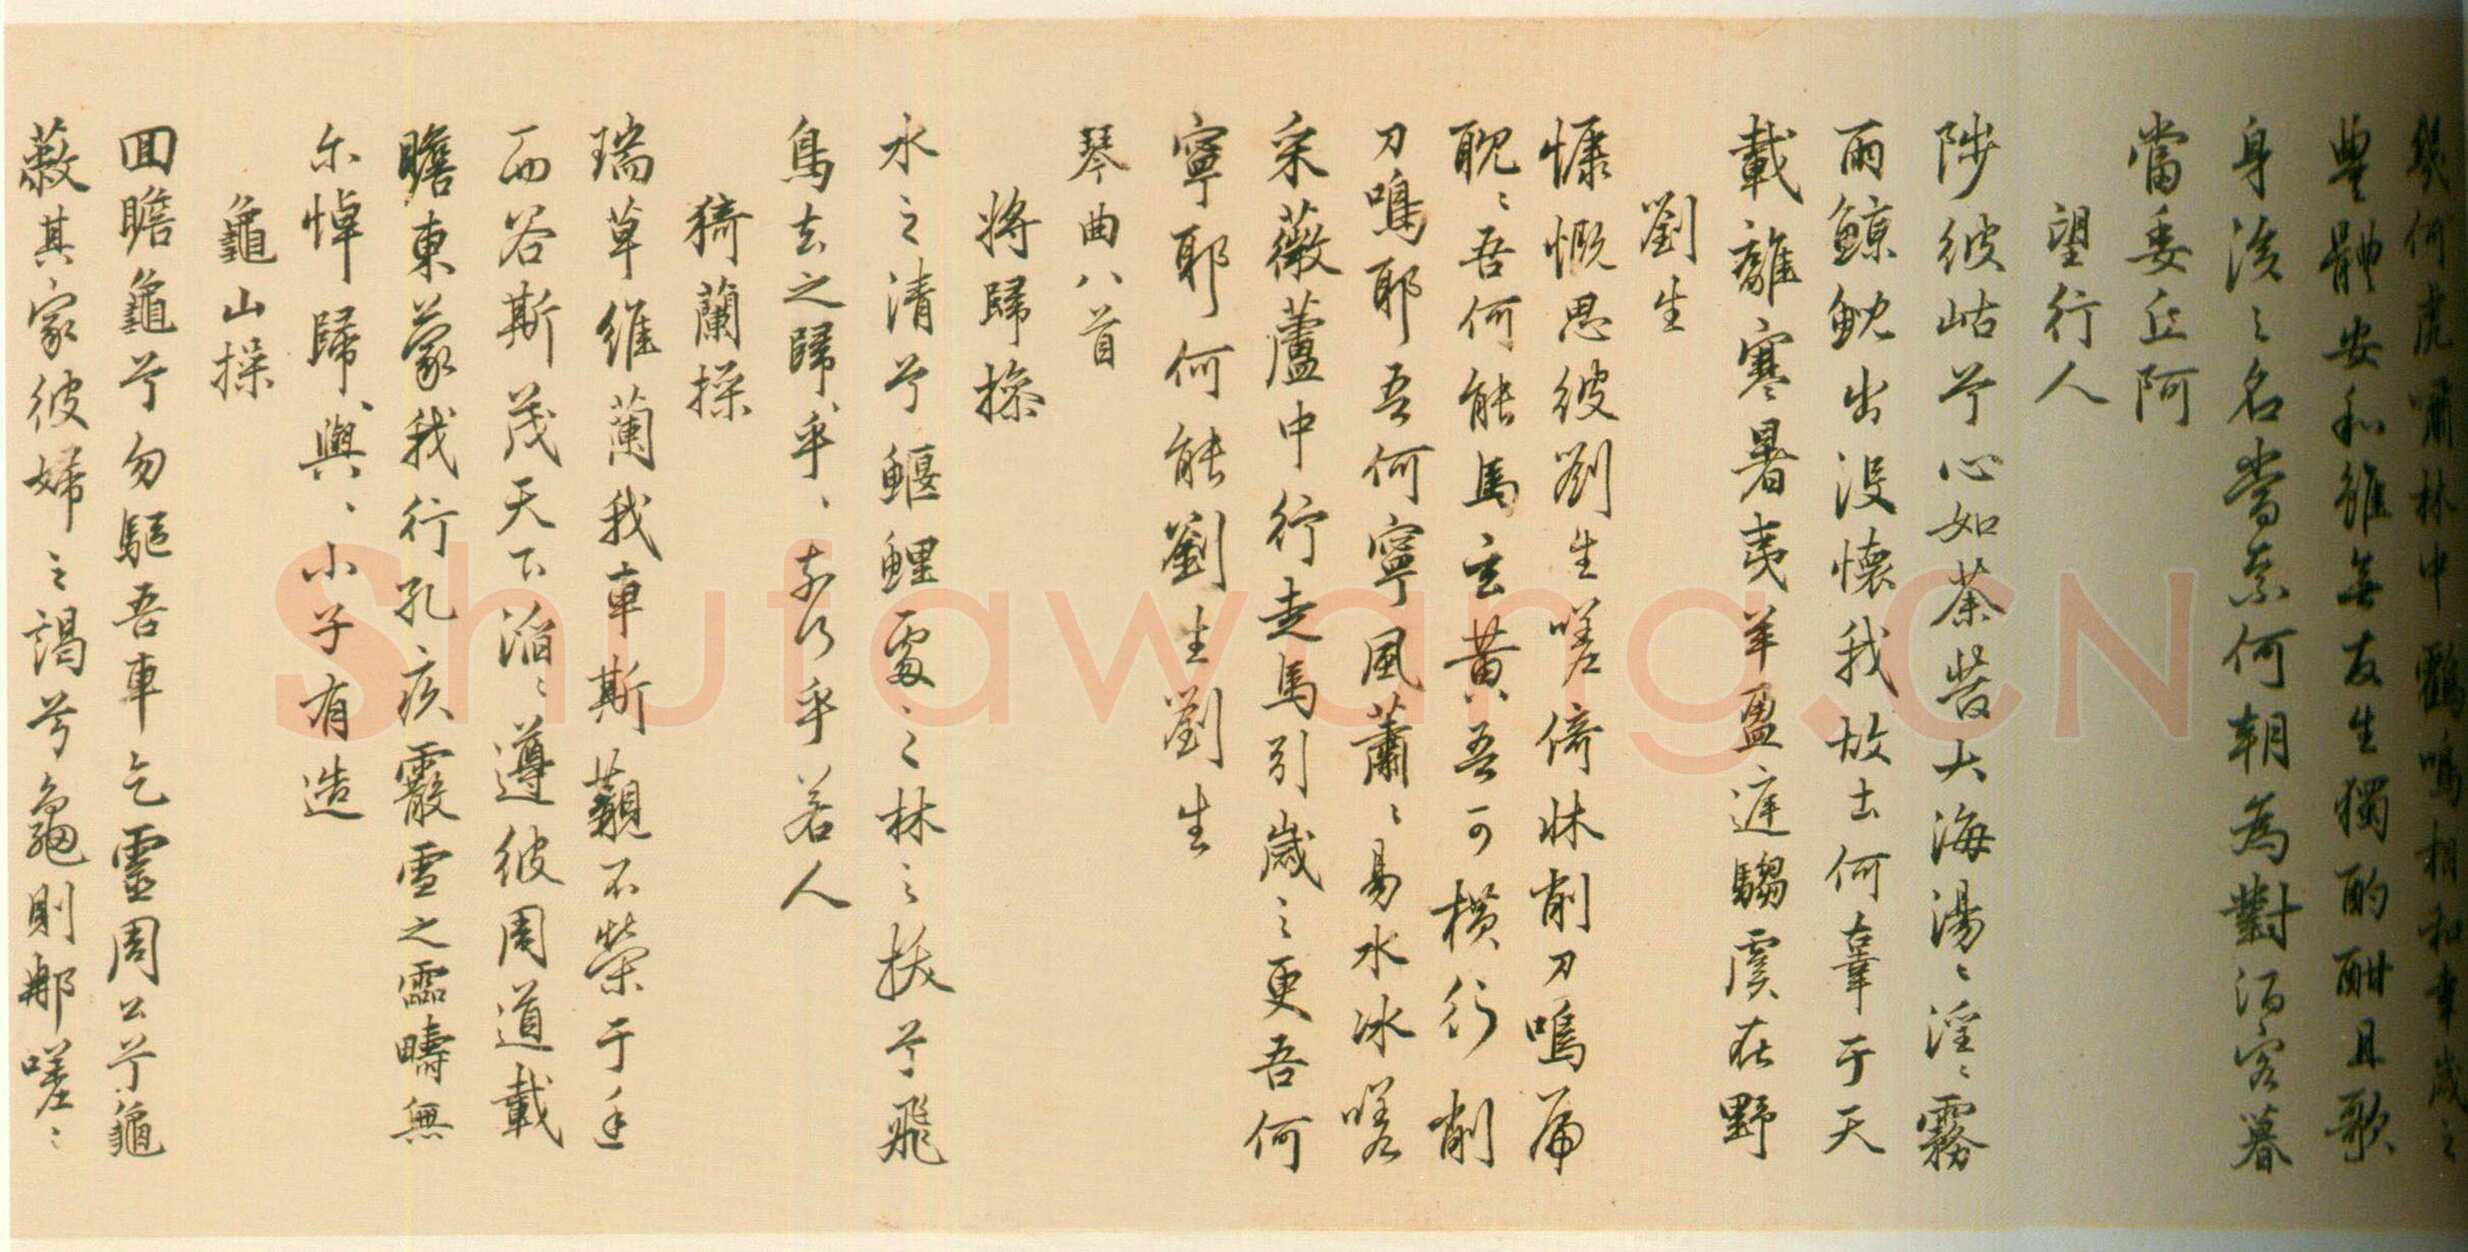 幾何虎嘯林中鶴鳴相和聿歲之
豐體安和雖無友生獨酌酣且歌
身後之名當奈何朝為對酒客暮
當委丘阿
望行人
陟彼岵兮心如荼苦大海湯〻淫〻霧
雨鯨魷出沒懷我故土何辜于天
載離寒暑夷羊盈庭騶虞在野
劉生
慷慨思彼劉生嗟倚牀削刀鳴雁
耽〻吾何能馬玄黃吾可橫行削
刀鳴耶吾何寧風蕭〻易水冰嗟
采薇蘆中行走馬引歲之更吾何
寧耶何能劉生劉生
琴曲八首
將歸操
水之清兮鰋鯉處之林之扶兮飛
鳥去之歸乎〻前行乎若人
猗蘭操
瑞草維蘭我車斯覯不榮于逵
而谷斯茂天下滔〻遵彼周道載
瞻東蒙我行孔疚霰雪之霑疇無
尔悼歸〻與〻小子有造
龜山操
回瞻龜兮勿驅吾車乞靈周公兮龜
蔽其家彼婦之謁兮龜則那嗟〻
Shufawang.CN